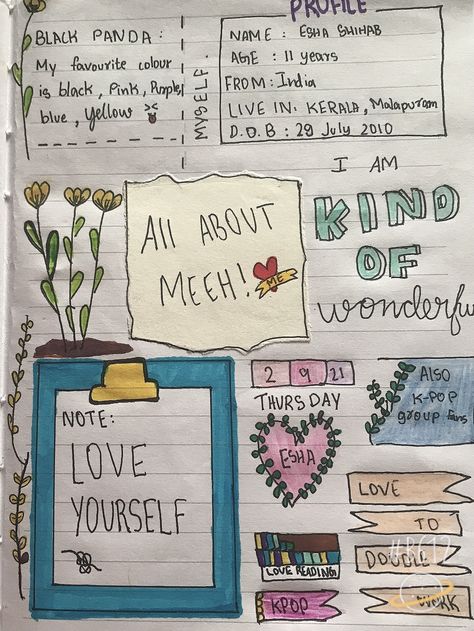 PROFILE
BLACK PANDA :
My favourite colour
is black, Pink, Purple,
blue, yellow
MYSELF.
NAME : ESHA SHIHAB
AGE : 11 years
FROM: India
LIVE IN: KERALA, Malapuram
D.O.B : 29 July 2010
I AM
KIND
OF
wonderfu
All ABOUT
MEEH!
ME
NOTE:
LOVE
YOURSELF
2 9 21
THURSDAY
ESHA
Also
K-POP
group fans
LOVE
TO
DOUDLE
WORK
LOVE READING
KPOP